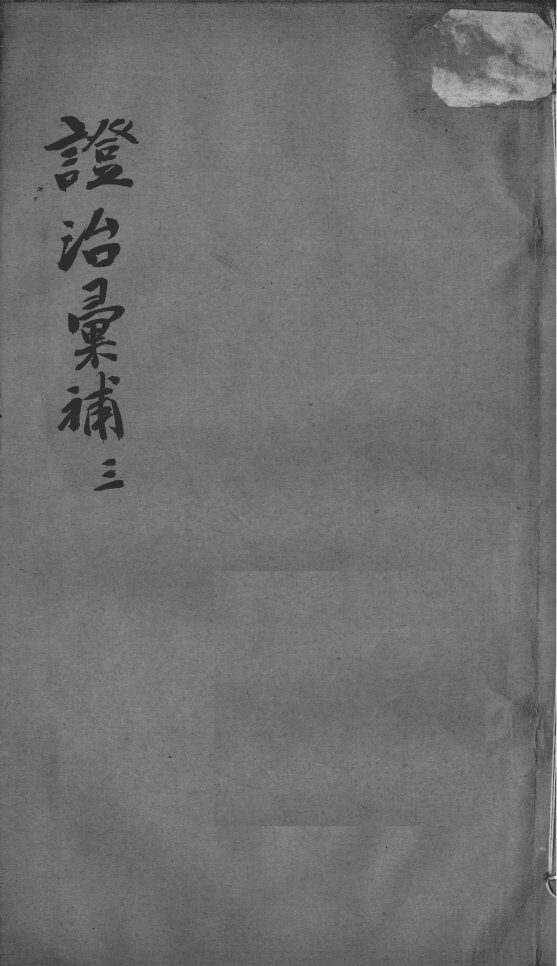 證治彙補三